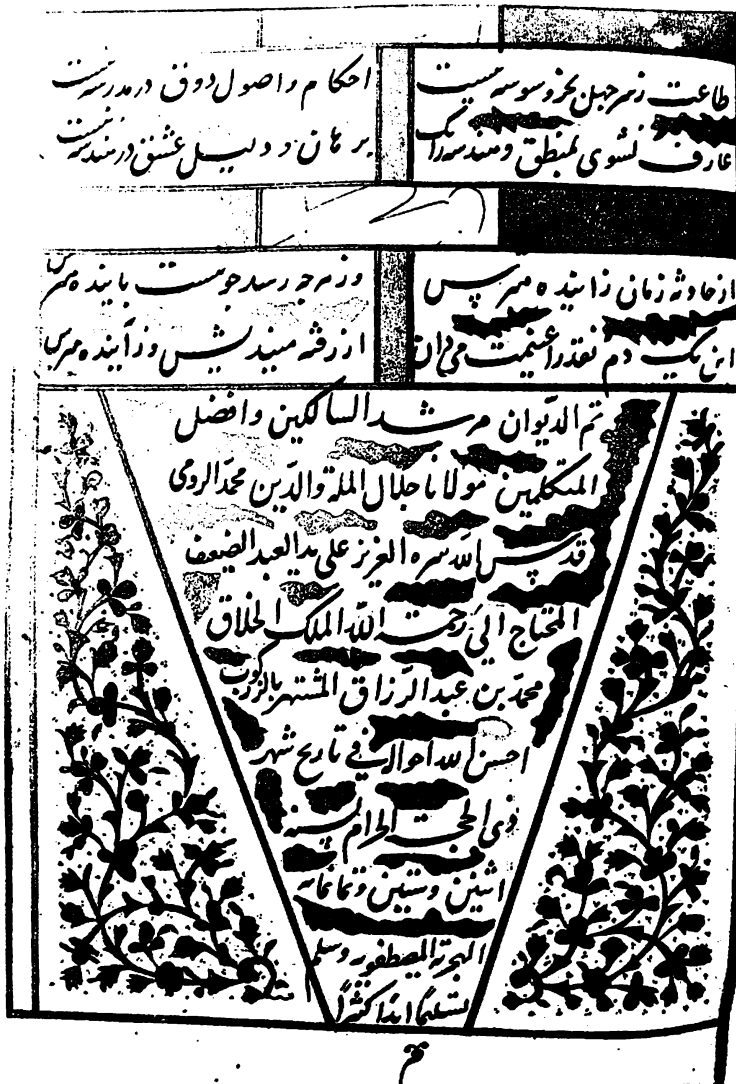 طاعت ز سر جهل بجز وسوسه نیست
احکام و اصول ذوق در مدرسه نیست
عارف نشوی بمنطق و هندسه زانک
برهان و دلیل عشق در هندسه نیست
از حادثه زمان زاینده مترس
وز هرچه رسد چو نیست پاینده مترس
این یک دم نقد را غنیمت می دان
از رفته میندیش وز آینده مترس
تم الدیوان مرشد السالکین وافضل
المتکلمین مولانا جلال الملة والدین محمد الرومی
قدس الله سره العزیز علی ید العبد الضعیف
المحتاج الی رحمت الله الملک الخلاق
محمد بن عبد الرزاق المشتهر
احسن الله احواله فی تاریخ شهر
ذی الحجت الحرام لسنه
اثنین وستین وثمانمایه
الهجریة المصطفویه وسلم
تسلیما ابدا کثیرا
تم